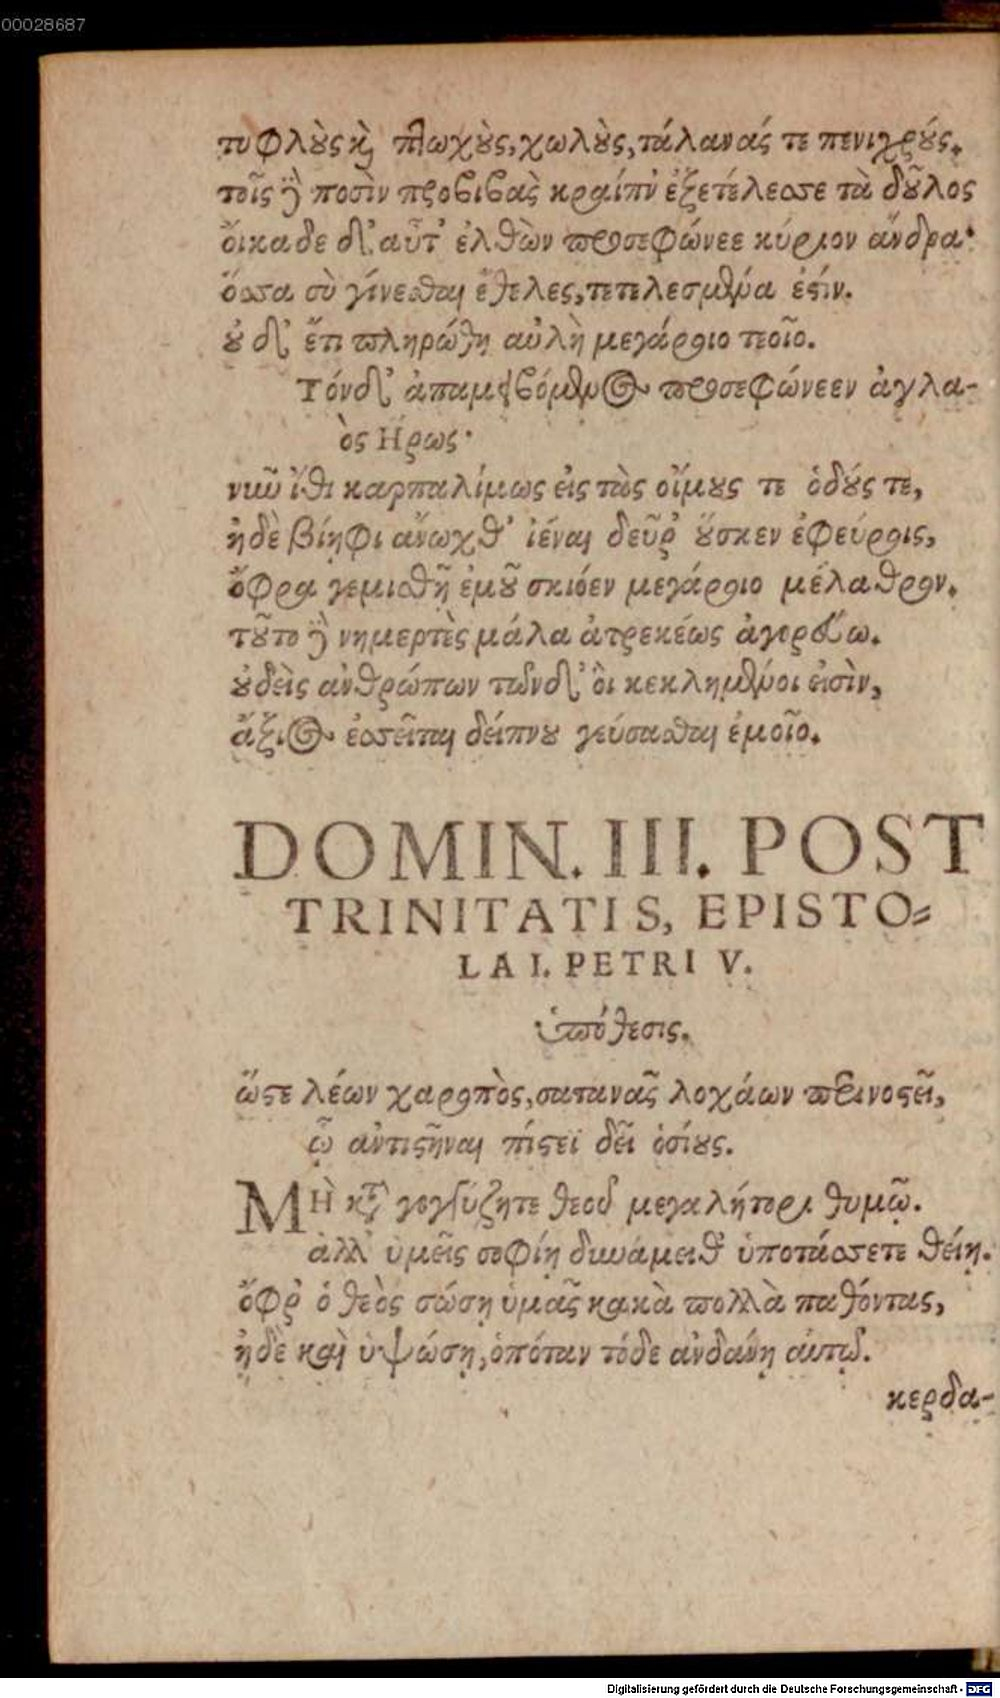 00028687
τυφλοὺς καὶ πτωχοὺς, χωλοὺς, τάλανάς τε πενιχρούς.
τοῖς δὲ ποσὶν προβιβὰς κραίπν' ἐξετέλεσσε τὰ δοῦλος
ὄικαδε δ' αὖτ' ἐλθὼν προσεφώνεε κύριον ἄνδρα·
ὅσσα σὺ γίνεσθαι ἔθελες, τετελεσμένα ἐστίν.
οὐ δ' ἔτι πληρώθη αὐλὴ μεγάροιο τεοῖο.
Τόνδ' ἀπαμειβόμενος προσεφώνεεν ἀγλα-
ὸς Ηρως·
νῦν ἴθι καρπαλίμως εἰς τὰς οἴμους τε ὁδούς τε,
ἠδὲ βίηφι ἄνωχθ' ἰέναι δεῦρ' οὕσκεν ἐφεύροις,
ὄφρα γεμισθῇ ἐμοῦ σκιόεν μεγάροιο μέλαθρον.
τοῦτο δὲ νημερτὲς μάλα ἀτρεκέως ἀγορεύω.
οὐδεὶς ἀνθρώπων τῶνδ' ὃι κεκλημένοι εἰσὶν,
ἄξιος ἐσσεῖται δείπνου γεύσασθαι ἐμοῖο.
DOMIN. III. POST
TRINITATIS, EPISTO=
LA I. PETRI V.
ὑπόθεσις.
ὥστε λέων χαροπὸς, σατανᾶς λοχάων περινοστεῖ,
ᾧ ἀντιστῆναι πίστεϊ δεῖ ὁσίους.
ΜῊ καταγογγύζητε θεοῦ μεγαλήτορι θυμῷ.
ἀλλ' ὑμεῖς σοφίῃ δυνάμειθ' ὑποτάσσετε θείῃ.
ὄφρ' ὁ θεὸς σώσῃ ὑμᾶς κακὰ πολλὰ παθόντας,
ἠδὲ καὶ ὑψώσῃ, ὁπόταν τόδε ἁνδάνῃ αὐτῷ.
κερδα-
Digitalisierung gefördert durch die Deutsche Forschungsgemeinschaft - DFG